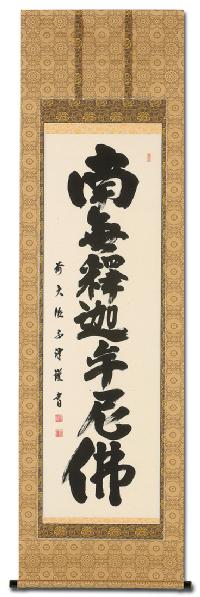 南無釋迦牟尼佛
前大德